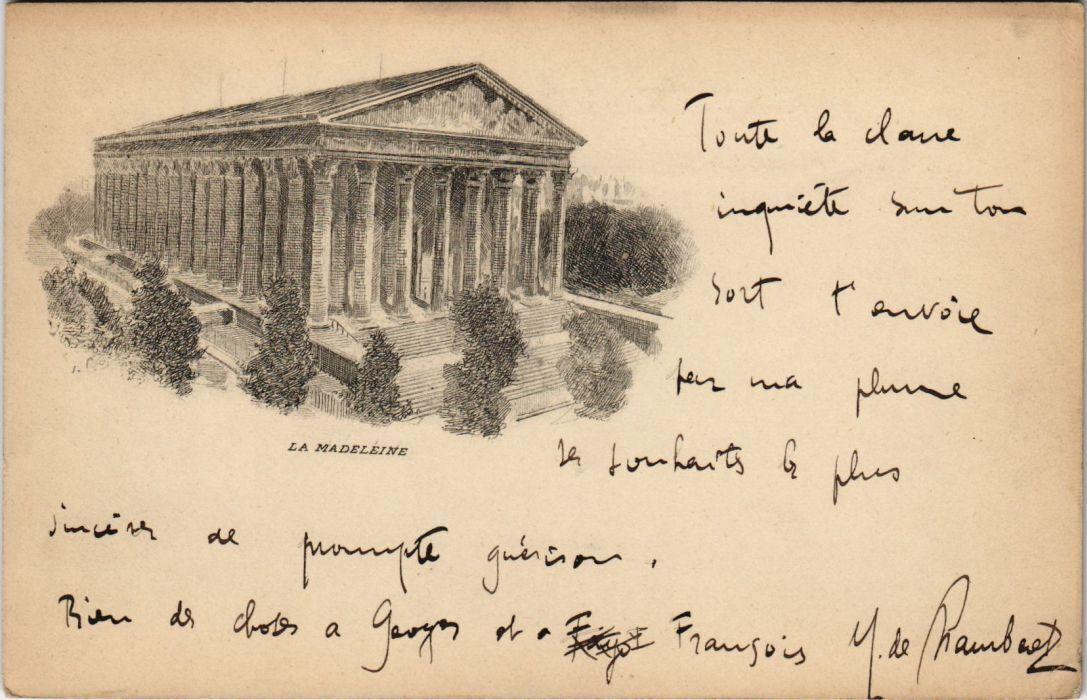 Toute la classe
inquiète sur ton
sort t'envoie
par ma plume
ses souhaits les plus
LA MADELEINE
sincères de prompte guérison.
Bien des choses a Georges et a François Y. de